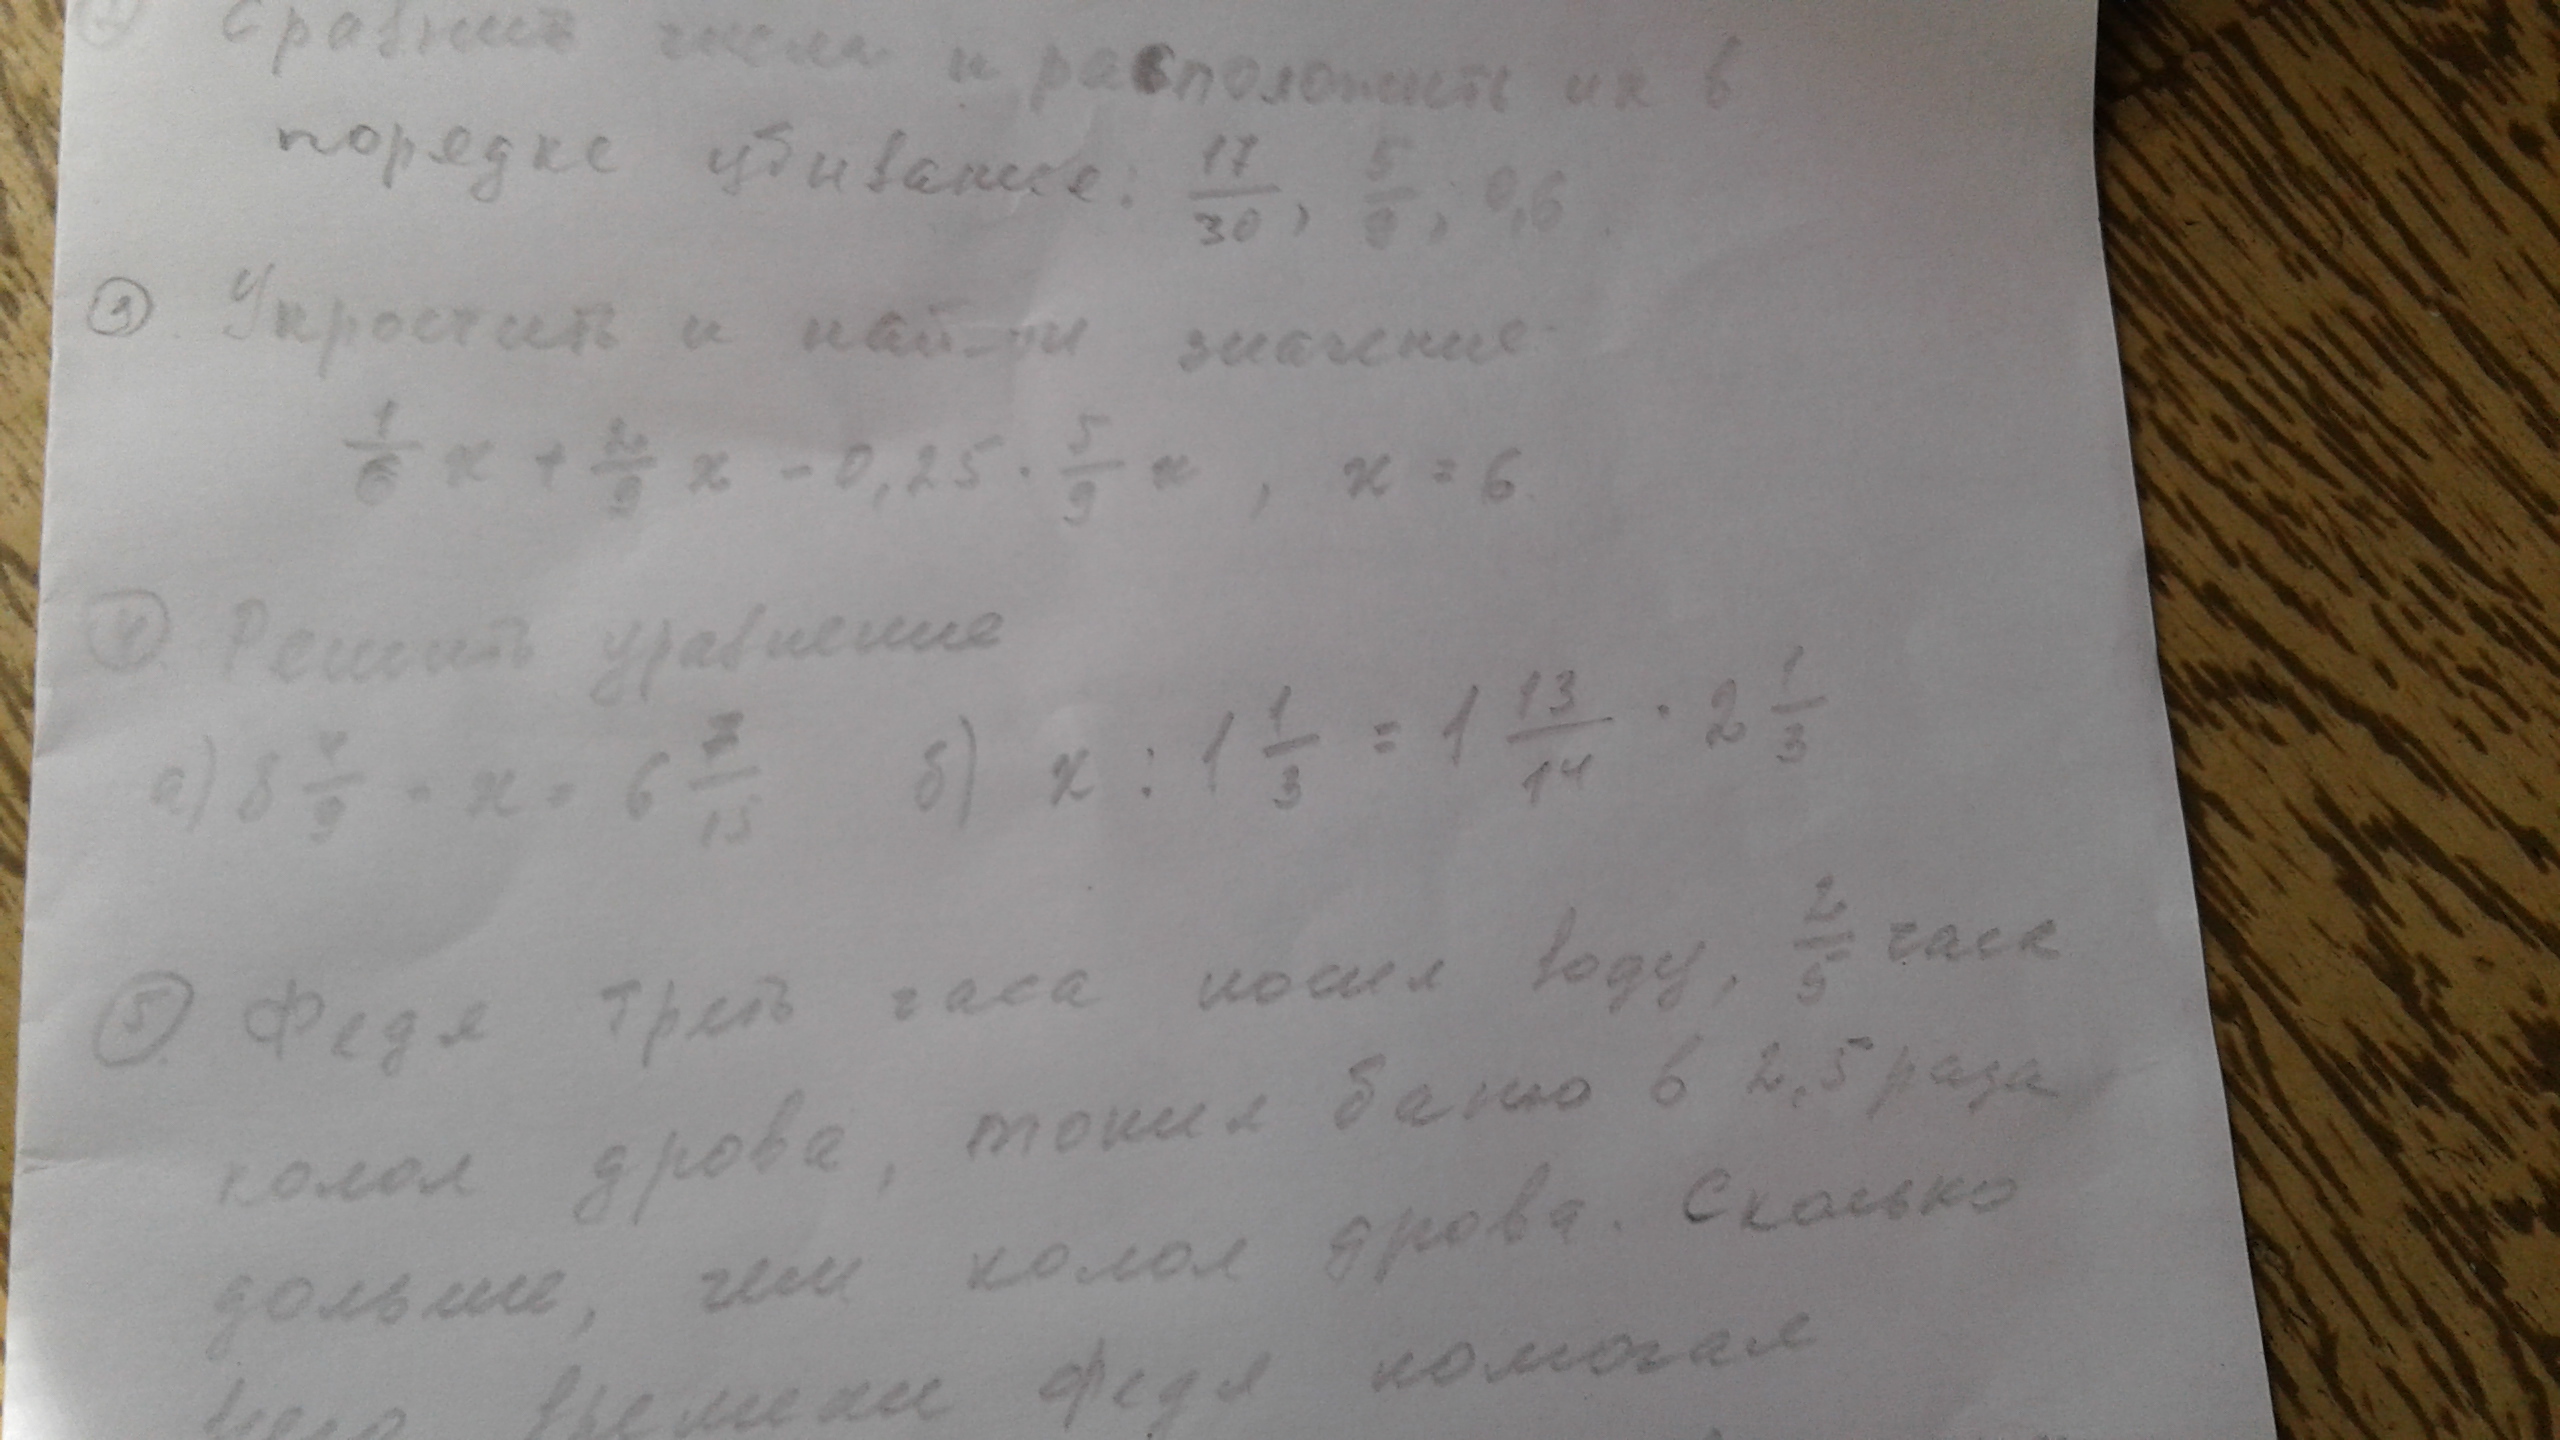 ② Сравнить числа и расположить их в
порядке убывания: 17/30, 5/9, 0,6
③. Упростить и найти значение
1/6 x + 2/9 x - 0,25 · 5/9 x , x = 6.
④. Решить уравнение
а) 8 4/9 - x = 6 7/15 б) x : 1 1/3 = 1 13/14 · 2 1/3
⑤. Федя треть часа носил воду, 2/5 часа
колол дрова, топил баню в 2,5 раза
дольше, чем колол дрова. Сколько
всего времени Федя помогал